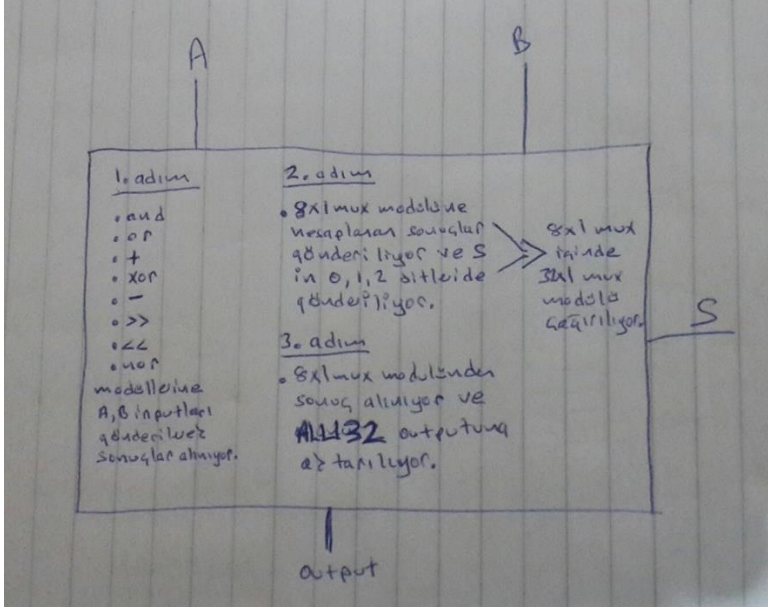 A
B
1. adım
• and
• or
• +
• xor
• -
• >>
• <<
• nor
modüllerine
A, B inputları
gönderilerek
sonuçlar alınıyor.
2. adım
• 8x1 mux modülüne
hesaplanan sonuçlar
gönderiliyor ve S
in 0, 1, 2 bitleride
gönderiliyor.
8x1 mux
içinde
mux
modülü
çağırılıyor.
3. adım
• 8x1 mux modülünden
sonuç alınıyor ve
ALU32 outputuna
aktarılıyor.
S
output